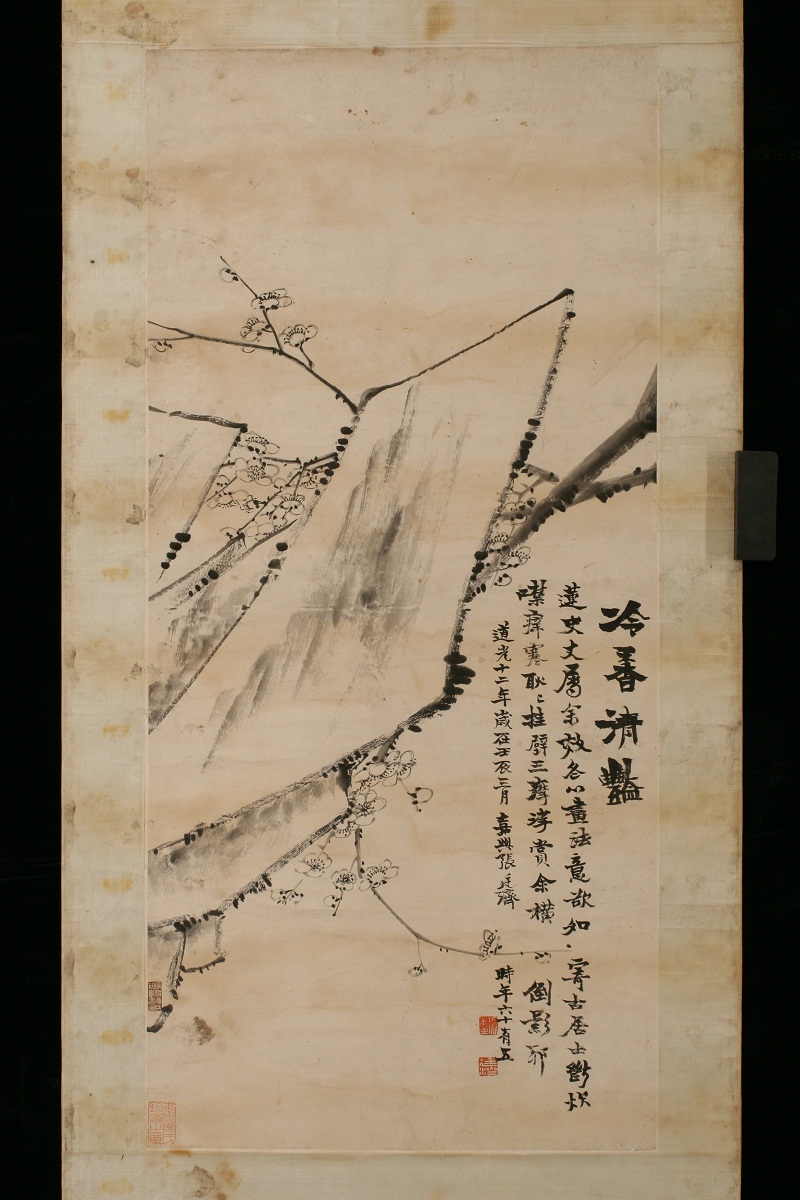 冷香清豔
蓮史丈屬余效冬心畫法意欲如寄古居士斷炊
寒耿耿挂壁三齋賞余橫倒影邪
道光十二年歲在壬辰三月 嘉興張廷濟 時年六十有五